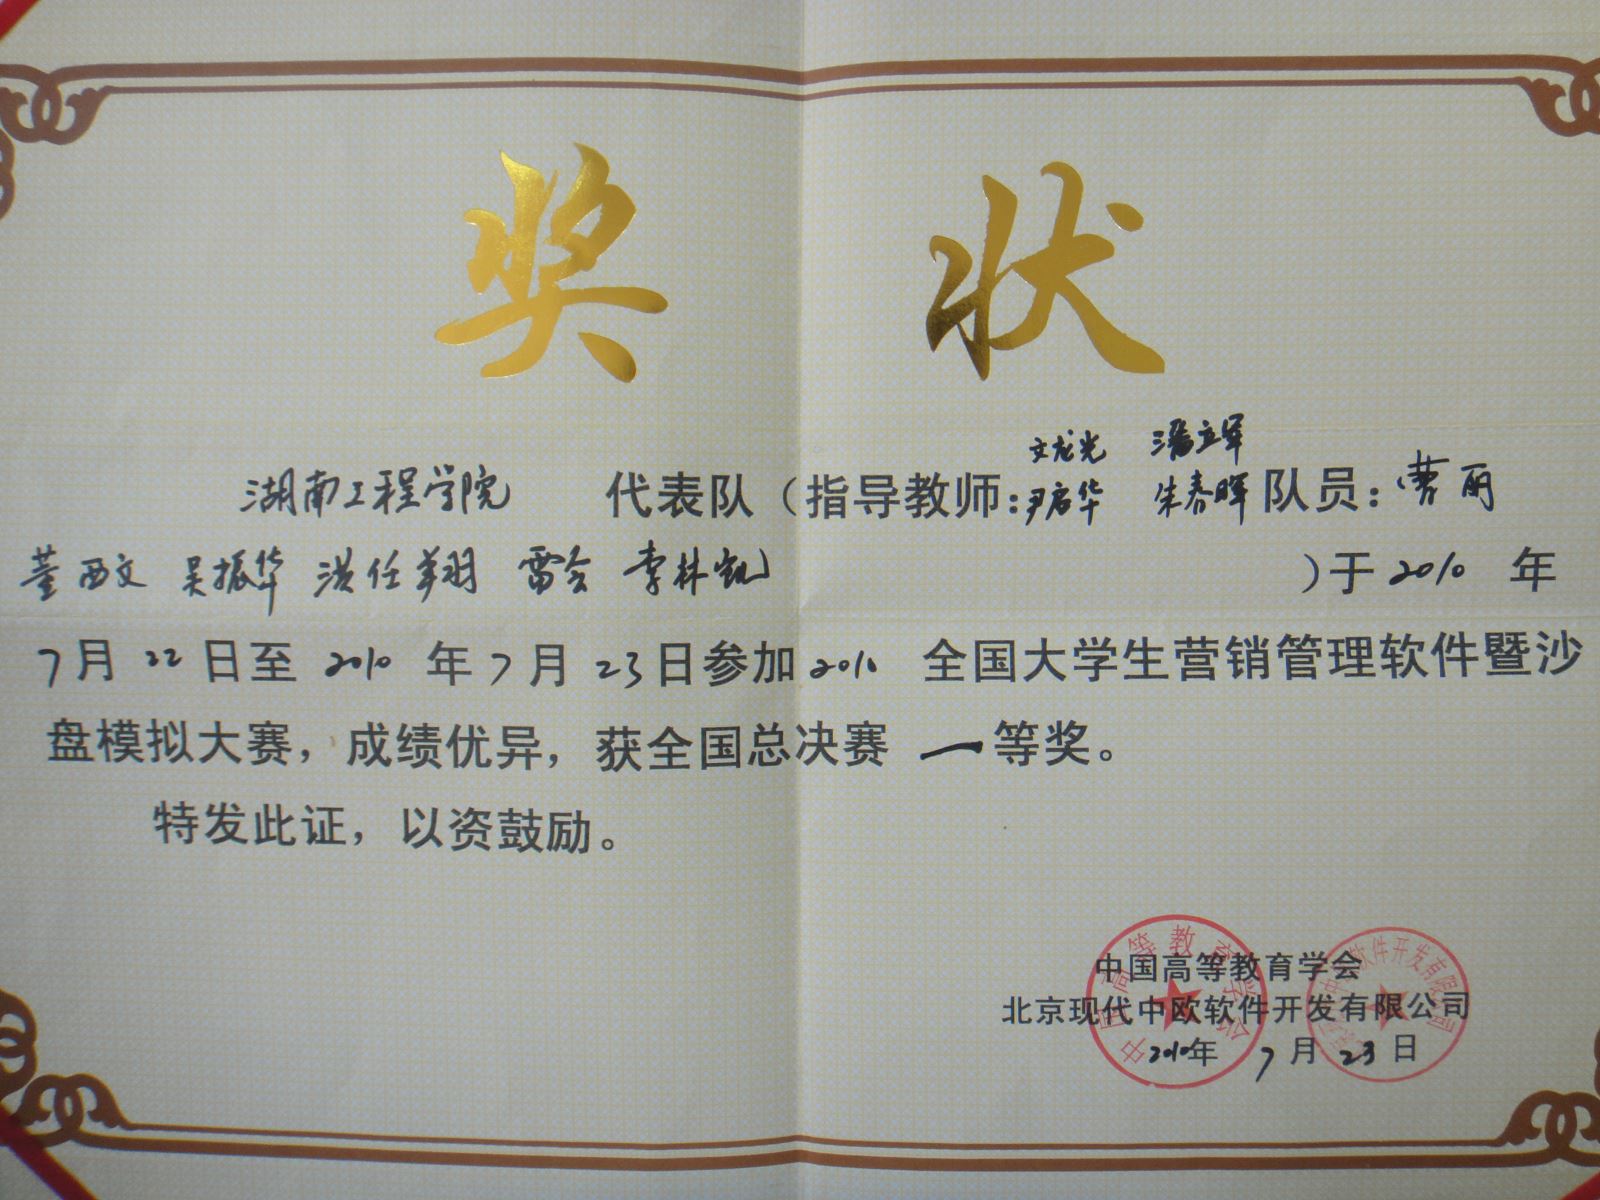 奖 状
文龙光 潘立军
湖南工程学院 代表队（指导教师：尹启华 朱春晖 队员：曹丽
董西文 吴振华 洪任翔 雷会 李林凯 ）于2010年
7月22日至2010年7月23日参加2010全国大学生营销管理软件暨沙
盘模拟大赛，成绩优异，获全国总决赛一等奖。
特发此证，以资鼓励。
中国高等教育学会
北京现代中欧软件开发有限公司
2010年7月23日
中国高等教育学会